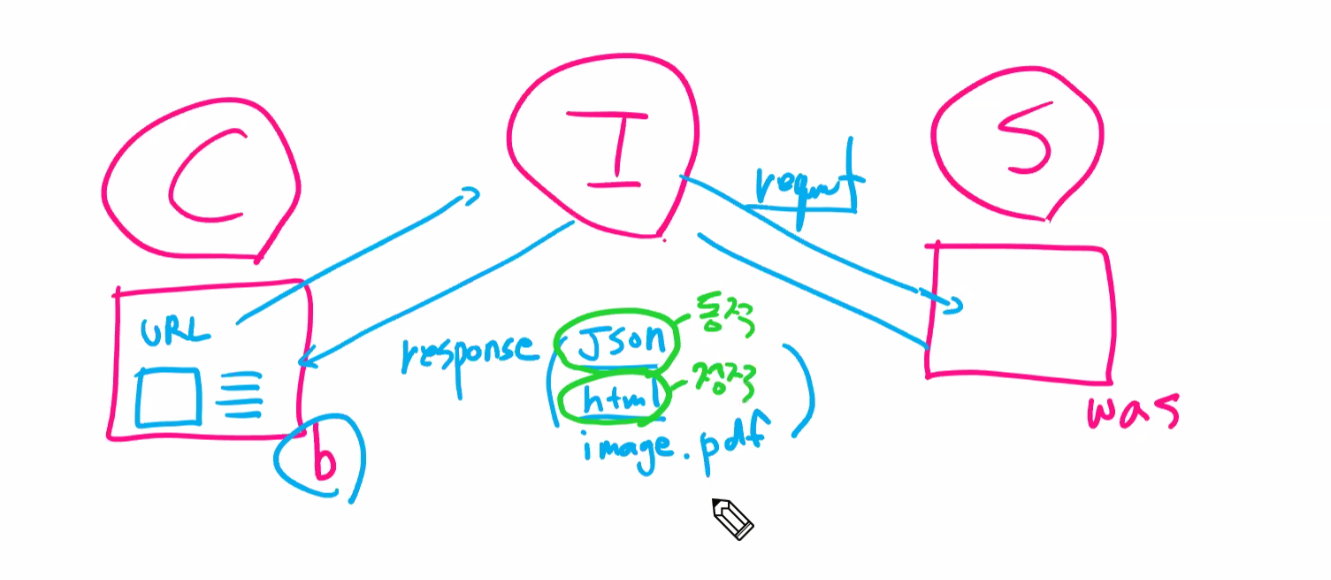 C
I
S
request
URL
response
Json
동적
html
정적
image.pdf
was
b